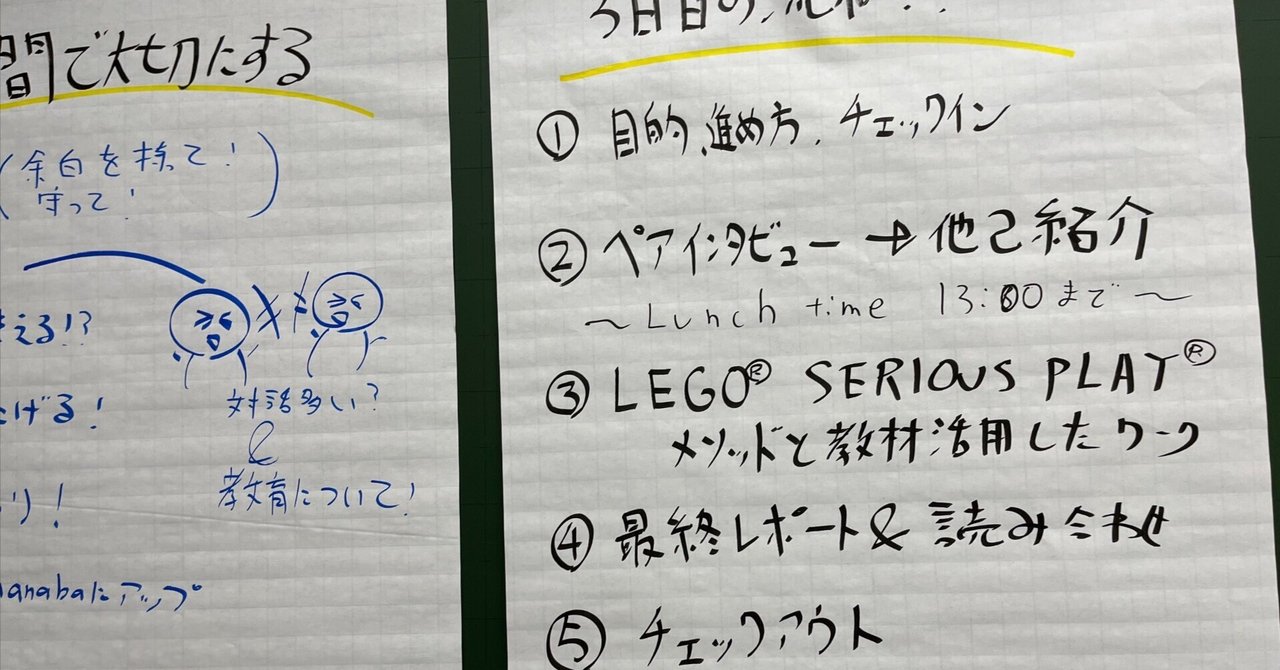 間で大切にする
(余白を捨て!
守って!)
える!?
げる!
り!
対話多い?
&
教育について!
manabaにアップ
3日目の流れ!!
① 目的、進め方、チェックイン
② ペアインタビュー → 他己紹介
~Lunch time 13:00まで~
③ LEGO® SERIOUS PLAY®
メソッドと教材活用したワーク
④ 最終レポート & 読み合わせ
⑤ チェックアウト